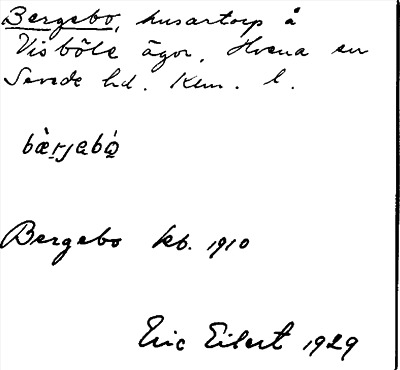 Bergebo, husartorp å
Visböle ägor, Hvena sn
Sevede hd. Klm. l.
bæ̀rjabó̱
Bergebo kb. 1910
Eric Eilert 1929